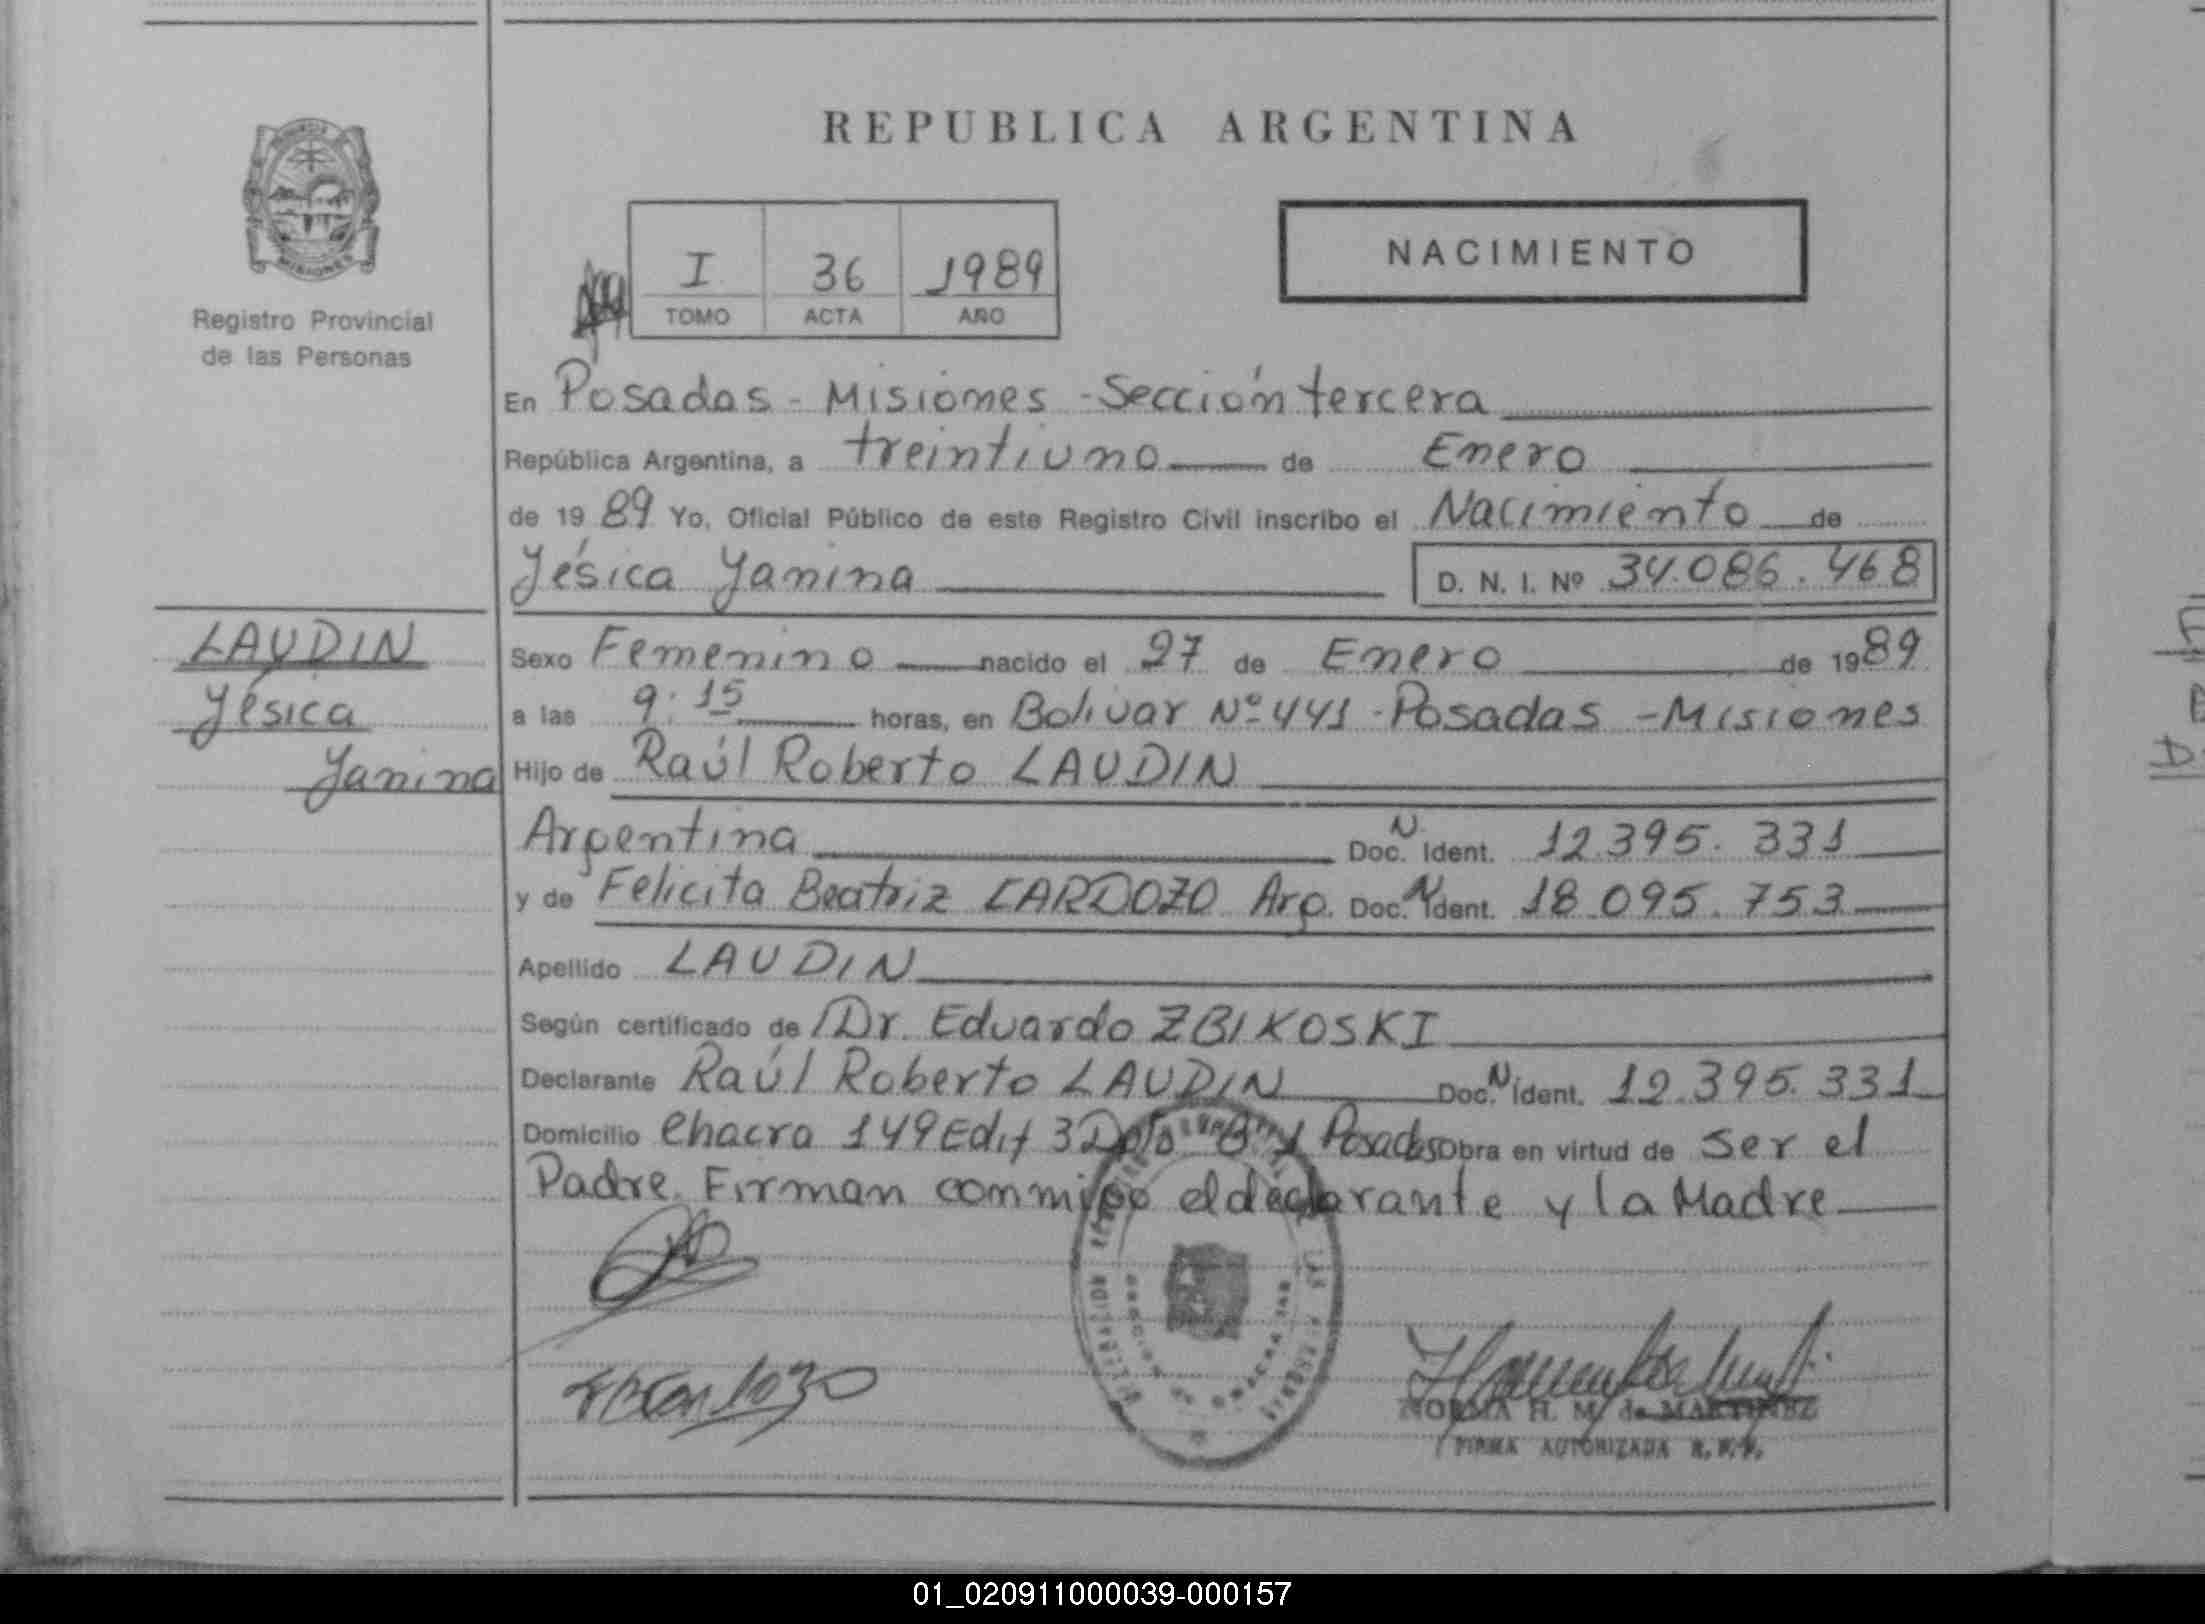 REPUBLICA ARGENTINA
MISIONES
Registro Provincial
de las Personas
I 36 1989
TOMO ACTA AÑO
NACIMIENTO
En Posadas - Misiones - Sección tercera
República Argentina, a treintiuno de Enero
de 1989 Yo, Oficial Público de este Registro Civil inscribo el Nacimiento de
Yésica Yanina D. N. I. Nº 34.086.468
LAUDIN
Yésica
Yanina
Sexo Femenino nacido el 27 de Enero de 1989
a las 9:15 horas, en Bolivar Nº 441 - Posadas - Misiones
Hijo de Raúl Roberto LAUDIN
Argentina Doc. N. Ident. 12.395.331
y de Felicita Beatriz CARDOZO Arg. Doc. N Ident. 18.095.753
Apellido LAUDIN
Según certificado de Dr. Eduardo ZBIKOSKI
Declarante Raúl Roberto LAUDIN Doc. N Ident. 12.395.331
Domicilio Chacra 149 Edif 3 Dpto Posadas Obra en virtud de ser el
Padre. Firman conmigo el declarante y la Madre
NORMA H. M. de MARTINEZ
FIRMA AUTORIZADA R.P.P.
01_020911000039-000157